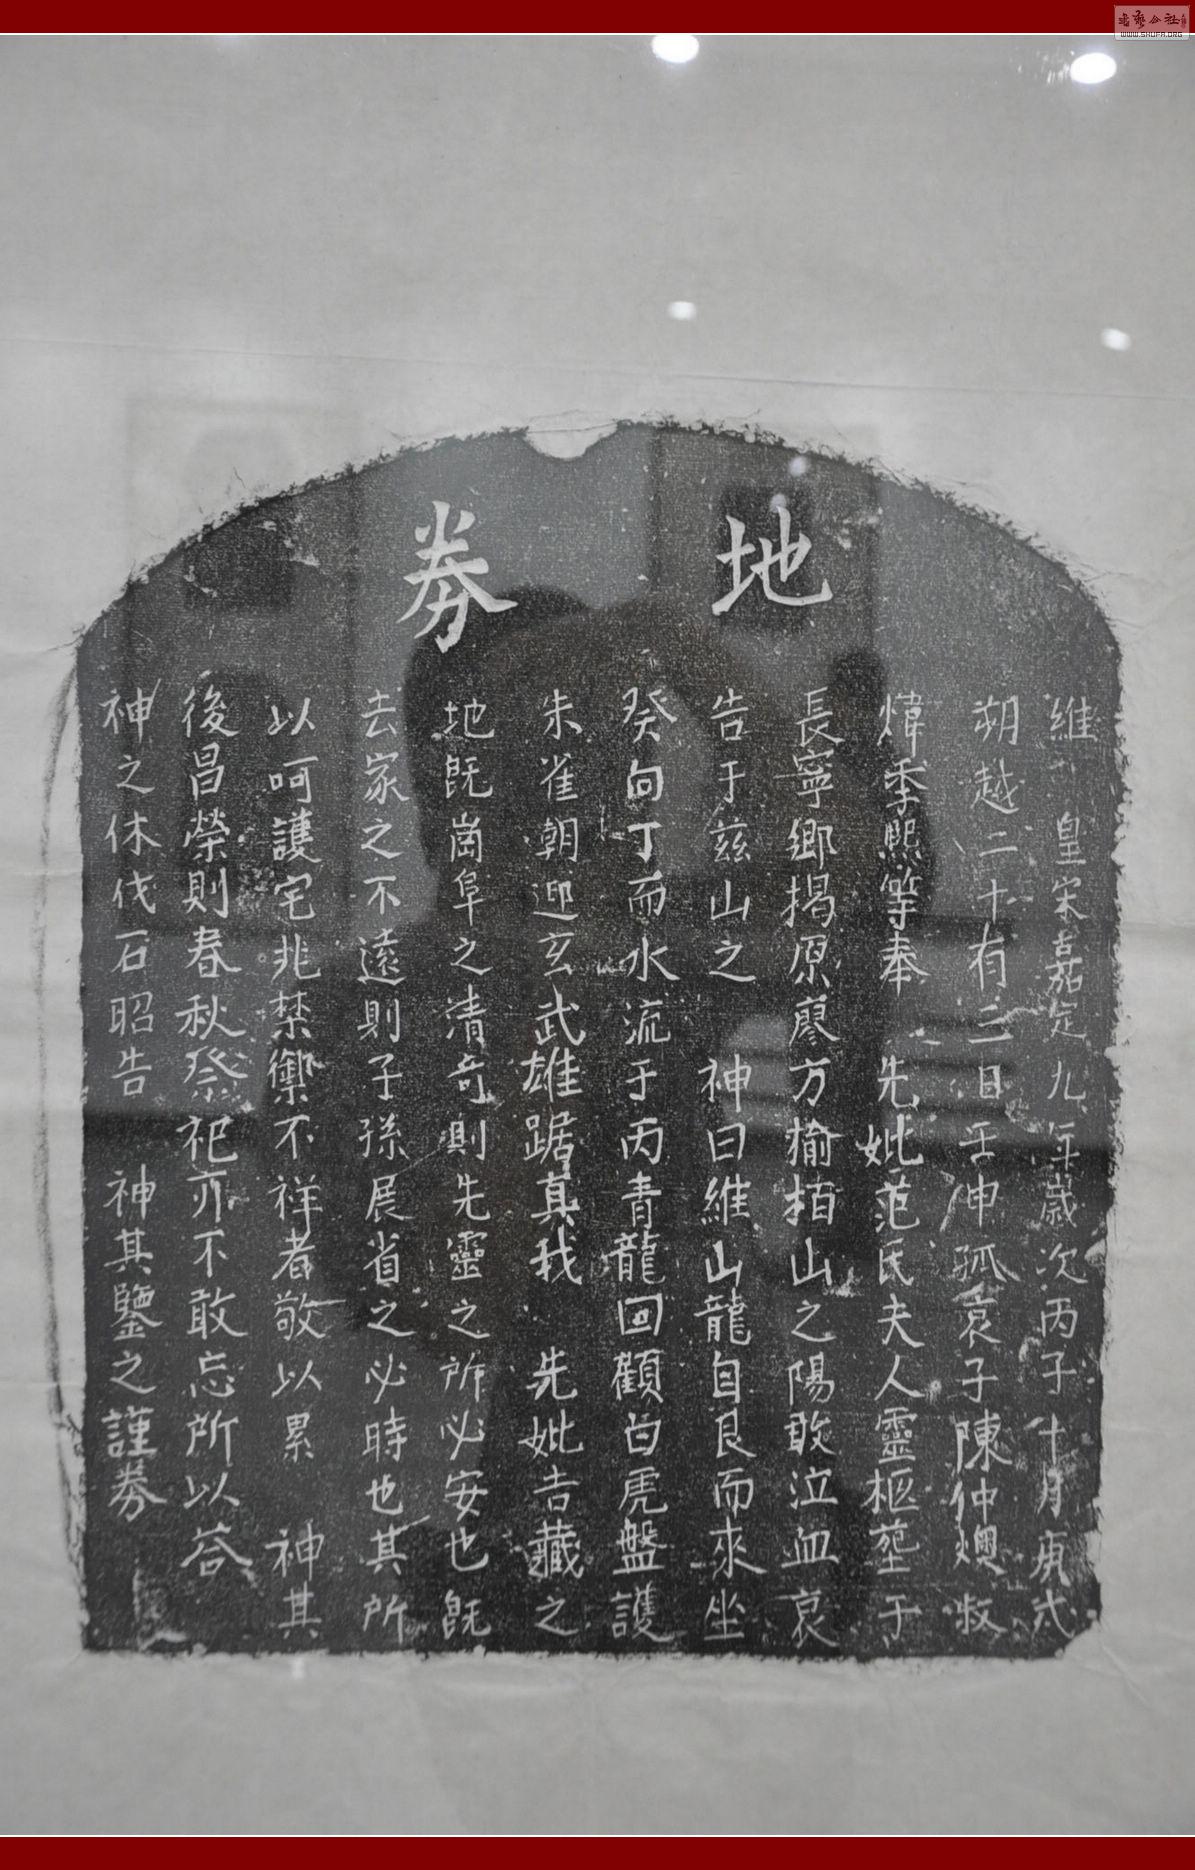 書藝公社
WWW.SHUFA.ORG
地券
維 皇宋嘉定九年歲次丙子十月庚戌
朔越二十有三日壬申孤哀子陳仲
煒季熙等奉 先妣范氏夫人靈柩葬于
長寧鄉揭原廖方榆栢山之陽敢泣血哀
告于茲山之 神曰維山龍自艮而來坐
癸向丁而水流于丙青龍回顧白虎盤護
朱雀朝迎玄武雄踞真我 先妣吉藏之
地既崗阜之清奇則先靈之所必安也既
去家之不遠則子孫展省之必時也其所
以呵護宅兆禁禦不祥者敬以累 神其
後昌榮則春秋祭祀亦不敢忘所以荅
神之休伐石昭告 神其鑒之謹券